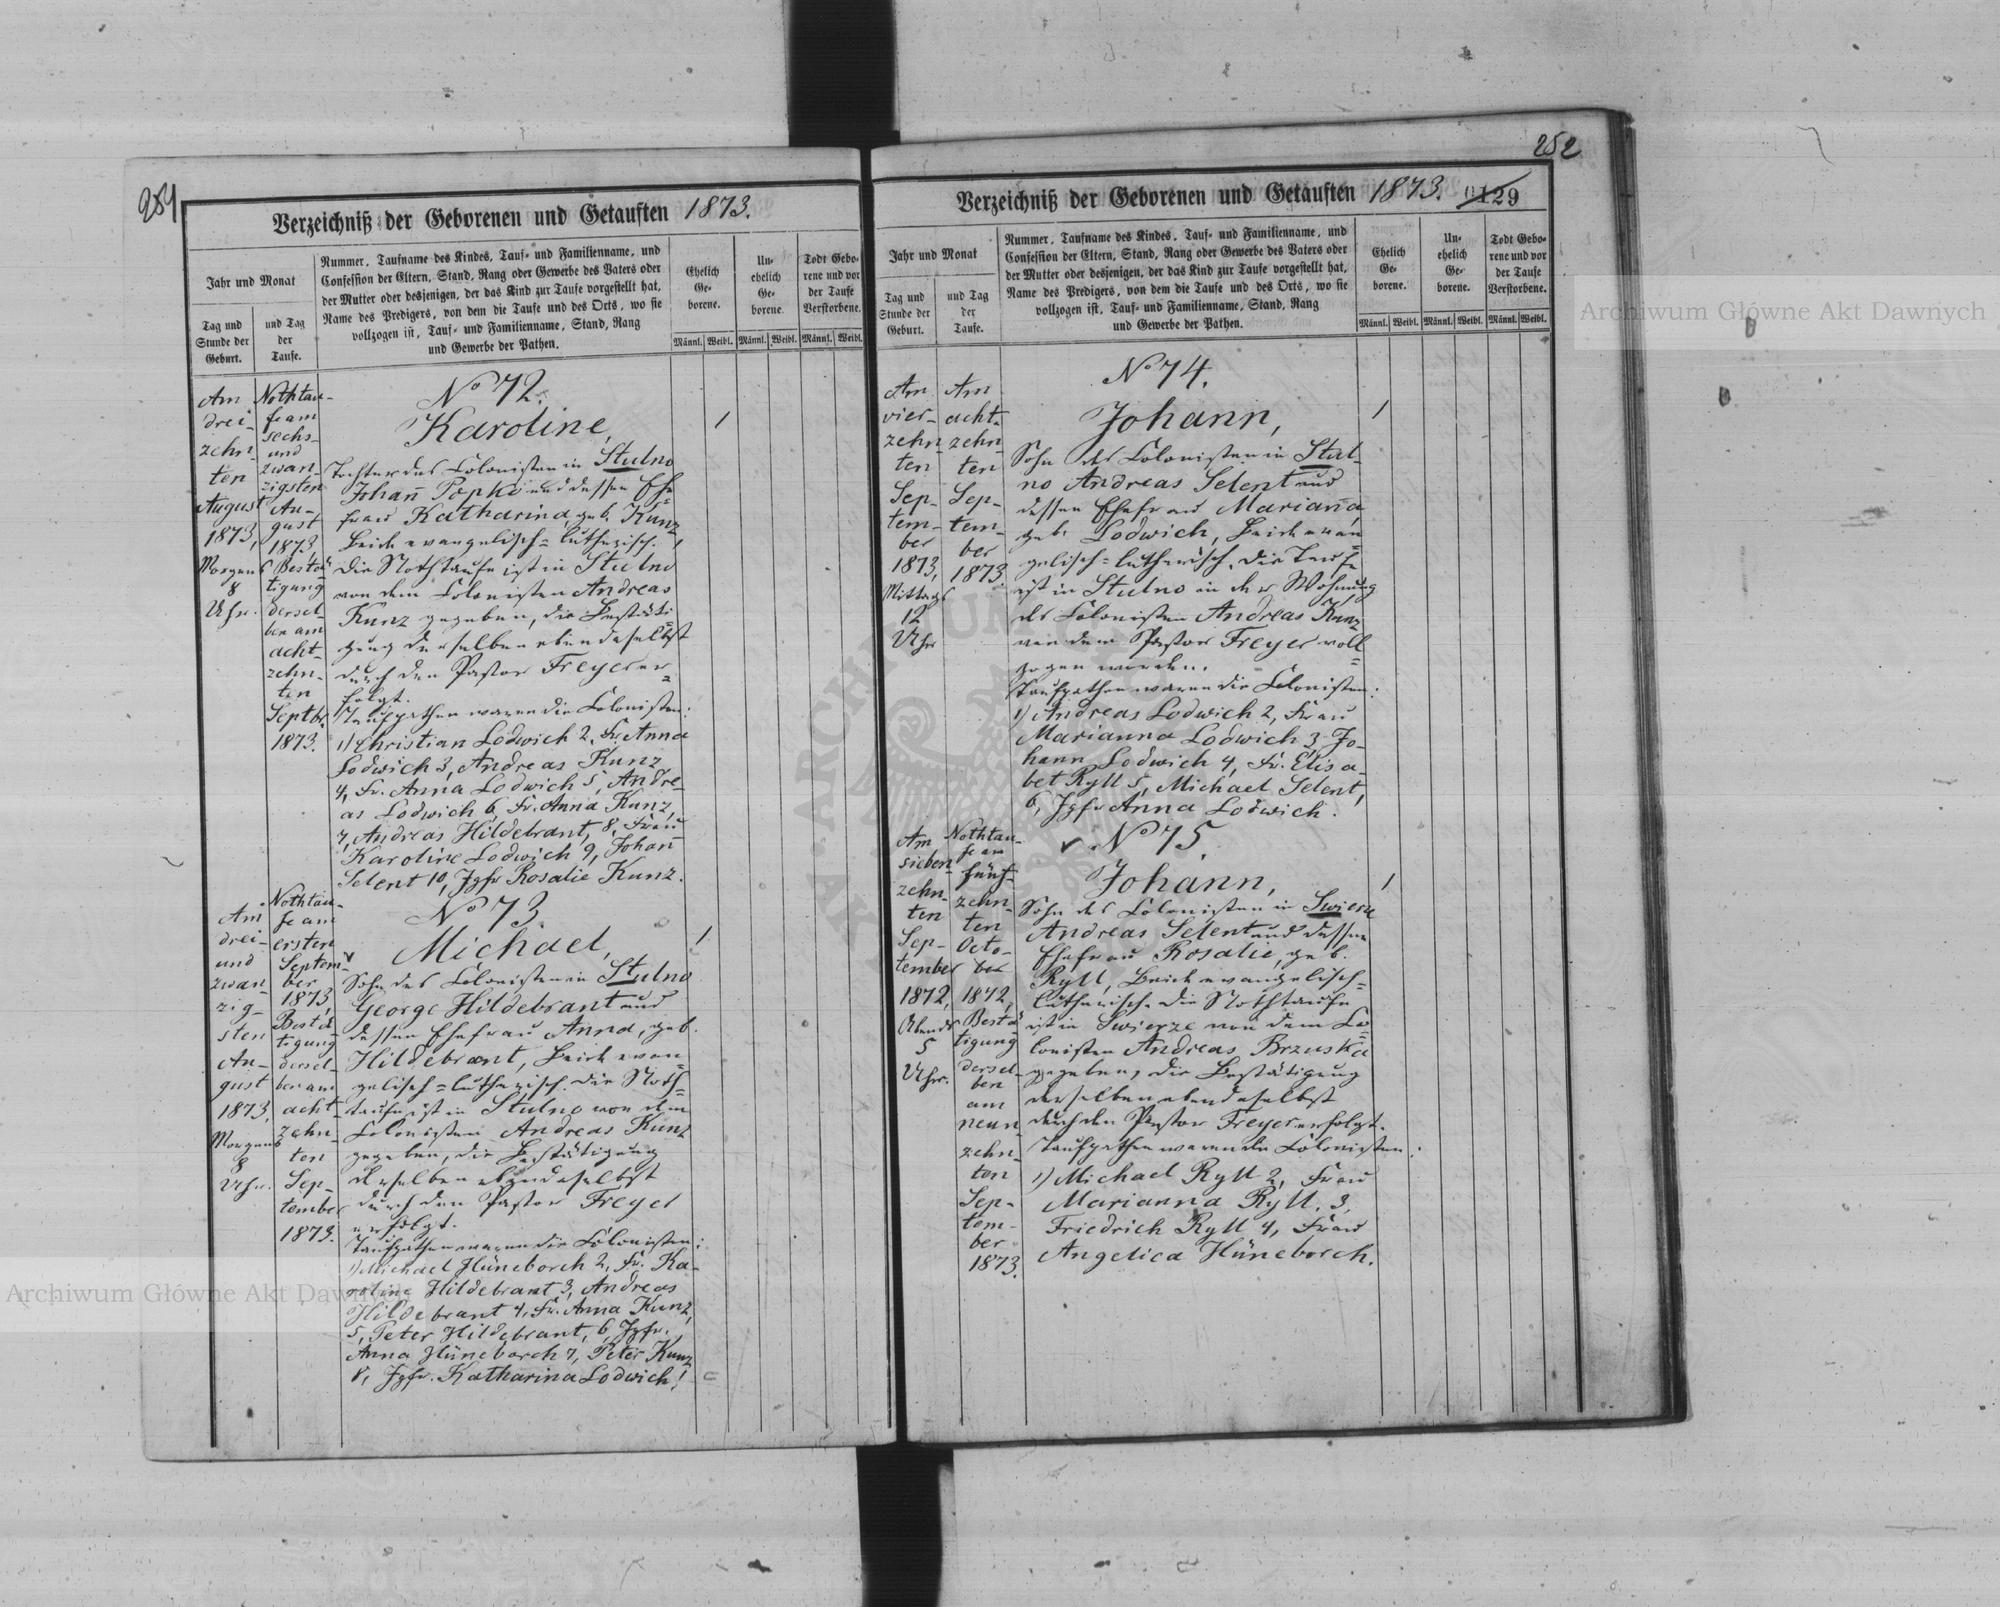 251
Verzeichniß der Geborenen und Getauften 1873.
Jahr und Monat
Tag und
Stunde der
Geburt.
und Tag
der
Taufe.
Nummer, Taufname des Kindes, Tauf- und Familienname, und
Confession der Eltern, Stand, Rang oder Gewerbe des Vaters oder
der Mutter oder desjenigen, der das Kind zur Taufe vorgestellt hat,
Name des Predigers, von dem die Taufe und des Orts, wo sie
vollzogen ist, Tauf- und Familienname, Stand, Rang
und Gewerbe der Pathen.
Ehelich
Ge-
borene.
Un-
ehelich
Ge-
borene.
Todt Gebo-
rene und vor
der Taufe
Verstorbene.
Männl. Weibl. Männl. Weibl. Männl. Weibl.
Am
drei-
zehn-
ten
August
1873,
Morgens
8
Uhr.
Nothtau-
fe am
sechs-
und
zwan-
zigsten
Au-
gust
1873,
Bestä-
tigung
dersel-
ben am
acht-
zehn-
ten
Septbr.
1873.
No 72.
Karoline,
Tochter des Colonisten in Stulno
Johan̄ Popko und dessen Ehe=
frau Katharina, geb. Kunz,
Beide evangelisch=lutherisch.
Die Nothtaufe ist in Stulno
von dem Colonisten Andreas
Kunz gegeben, die Bestäti=
gung derselben ebendaselbst
durch den Pastor Freyer er=
folgt.
Taufpathen waren die Colonisten:
1) Christian Lodwich 2, Fr. Anna
Lodwich 3, Andreas Kunz
4, Fr. Anna Lodwich 5, Andre-
as Lodwich 6, Fr. Anna Kunz,
7, Andreas Hildebrant, 8, Frau
Karoline Lodwich 9, Johan̄
Selent 10, Jgfr Rosalie Kunz.
1
Am
drei-
und
zwan-
zig-
sten
Au-
gust
1873,
Morgens
8
Uhr.
Nothtau-
fe am
ersten
Septem-
ber
1873,
Bestä-
tigung
dersel-
ben am
acht-
zehn-
ten
Sep-
tember
1873.
No 73.
Michael,
Sohn des Colonisten in Stulno
George Hildebrant und
dessen Ehefrau Anna, geb.
Hildebrant, Beide evan=
gelisch=lutherisch. Die Noth=
taufe ist in Stulno von dem
Colonisten Andreas Kunz
gegeben, die Bestätigung
derselben ebendaselbst
durch den Pastor Freyer
erfolgt.
Taufpathen waren die Colonisten:
1) Michael Hüneborch 2, Fr. Ka-
roline Hildebrant 3, Andreas
Hildebrant 4, Fr. Anna Kunz,
5, Peter Hildebrant, 6, Jgfr.
Anna Hüneborch 7, Peter Kunz
8, Jgfr. Katharina Lodwich.
1
252
Verzeichniß der Geborenen und Getauften 1873.
129
Jahr und Monat
Tag und
Stunde der
Geburt.
und Tag
der
Taufe.
Nummer, Taufname des Kindes, Tauf- und Familienname, und
Confession der Eltern, Stand, Rang oder Gewerbe des Vaters oder
der Mutter oder desjenigen, der das Kind zur Taufe vorgestellt hat,
Name des Predigers, von dem die Taufe und des Orts, wo sie
vollzogen ist, Tauf- und Familienname, Stand, Rang
und Gewerbe der Pathen.
Ehelich
Ge-
borene.
Un-
ehelich
Ge-
borene.
Todt Gebo-
rene und vor
der Taufe
Verstorbene.
Männl. Weibl. Männl. Weibl. Männl. Weibl.
Am
vier-
zehn-
ten
Sep-
tem-
ber
1873,
Mittags
12
Uhr
Am
acht-
zehn-
ten
Sep-
tem-
ber
1873.
No 74.
Johann,
Sohn des Colonisten in Stul-
no Andreas Selent und
dessen Ehefrau Marian̄a,
geb. Lodwich, Beide evan=
gelisch=lutherisch. Die Taufe
ist in Stulno in der Wohnung
des Colonisten Andreas Kunz
von dem Pastor Freyer voll=
zogen worden.
Taufpathen waren die Colonisten:
1) Andreas Lodwich 2, Frau
Marianna Lodwich 3, Jo-
hann Lodwich 4, Fr. Elisa-
bet Ryll 5, Michael Selent,
6, Jgfr Anna Lodwich.
1
Am
sieben-
zehn-
ten
Sep-
tember
1872,
Abends
5
Uhr.
Nothtau-
fe am
fünf-
zehn-
ten
Octo-
ber
1872,
Bestä-
tigung
dersel-
ben
am
neun-
zehn-
ten
Sep-
tem-
ber
1873.
No 75.
Johann,
Sohn des Colonisten in Swierze
Andreas Selent und dessen
Ehefrau Rosalie, geb.
Ryll, Beide evangelisch=
lutherisch. Die Nothtaufe
ist in Swierze von dem Co=
lonisten Andreas Brzuska
gegeben, die Bestätigung
derselben ebendaselbst
durch den Pastor Freyer erfolgt.
Taufpathen waren die Colonisten:
1) Michael Ryll 2, Frau
Marianna Ryll, 3,
Friedrich Ryll 4, Frau
Angelica Hüneborch.
1
Archiwum Główne Akt Dawnych
Archiwum Główne Akt Dawnych